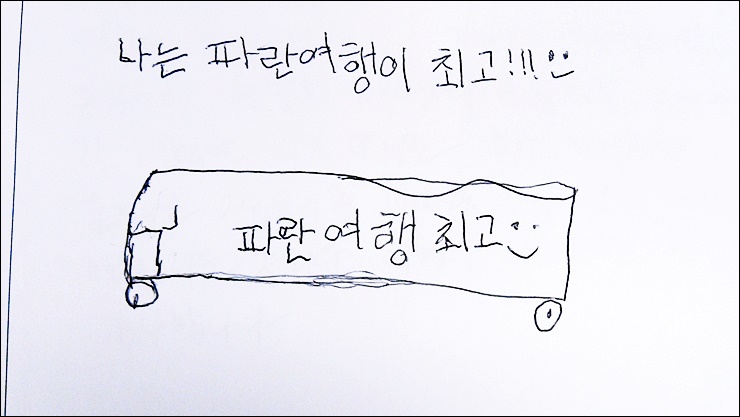 나는 파란여행이 최고!!!
파란여행 최고